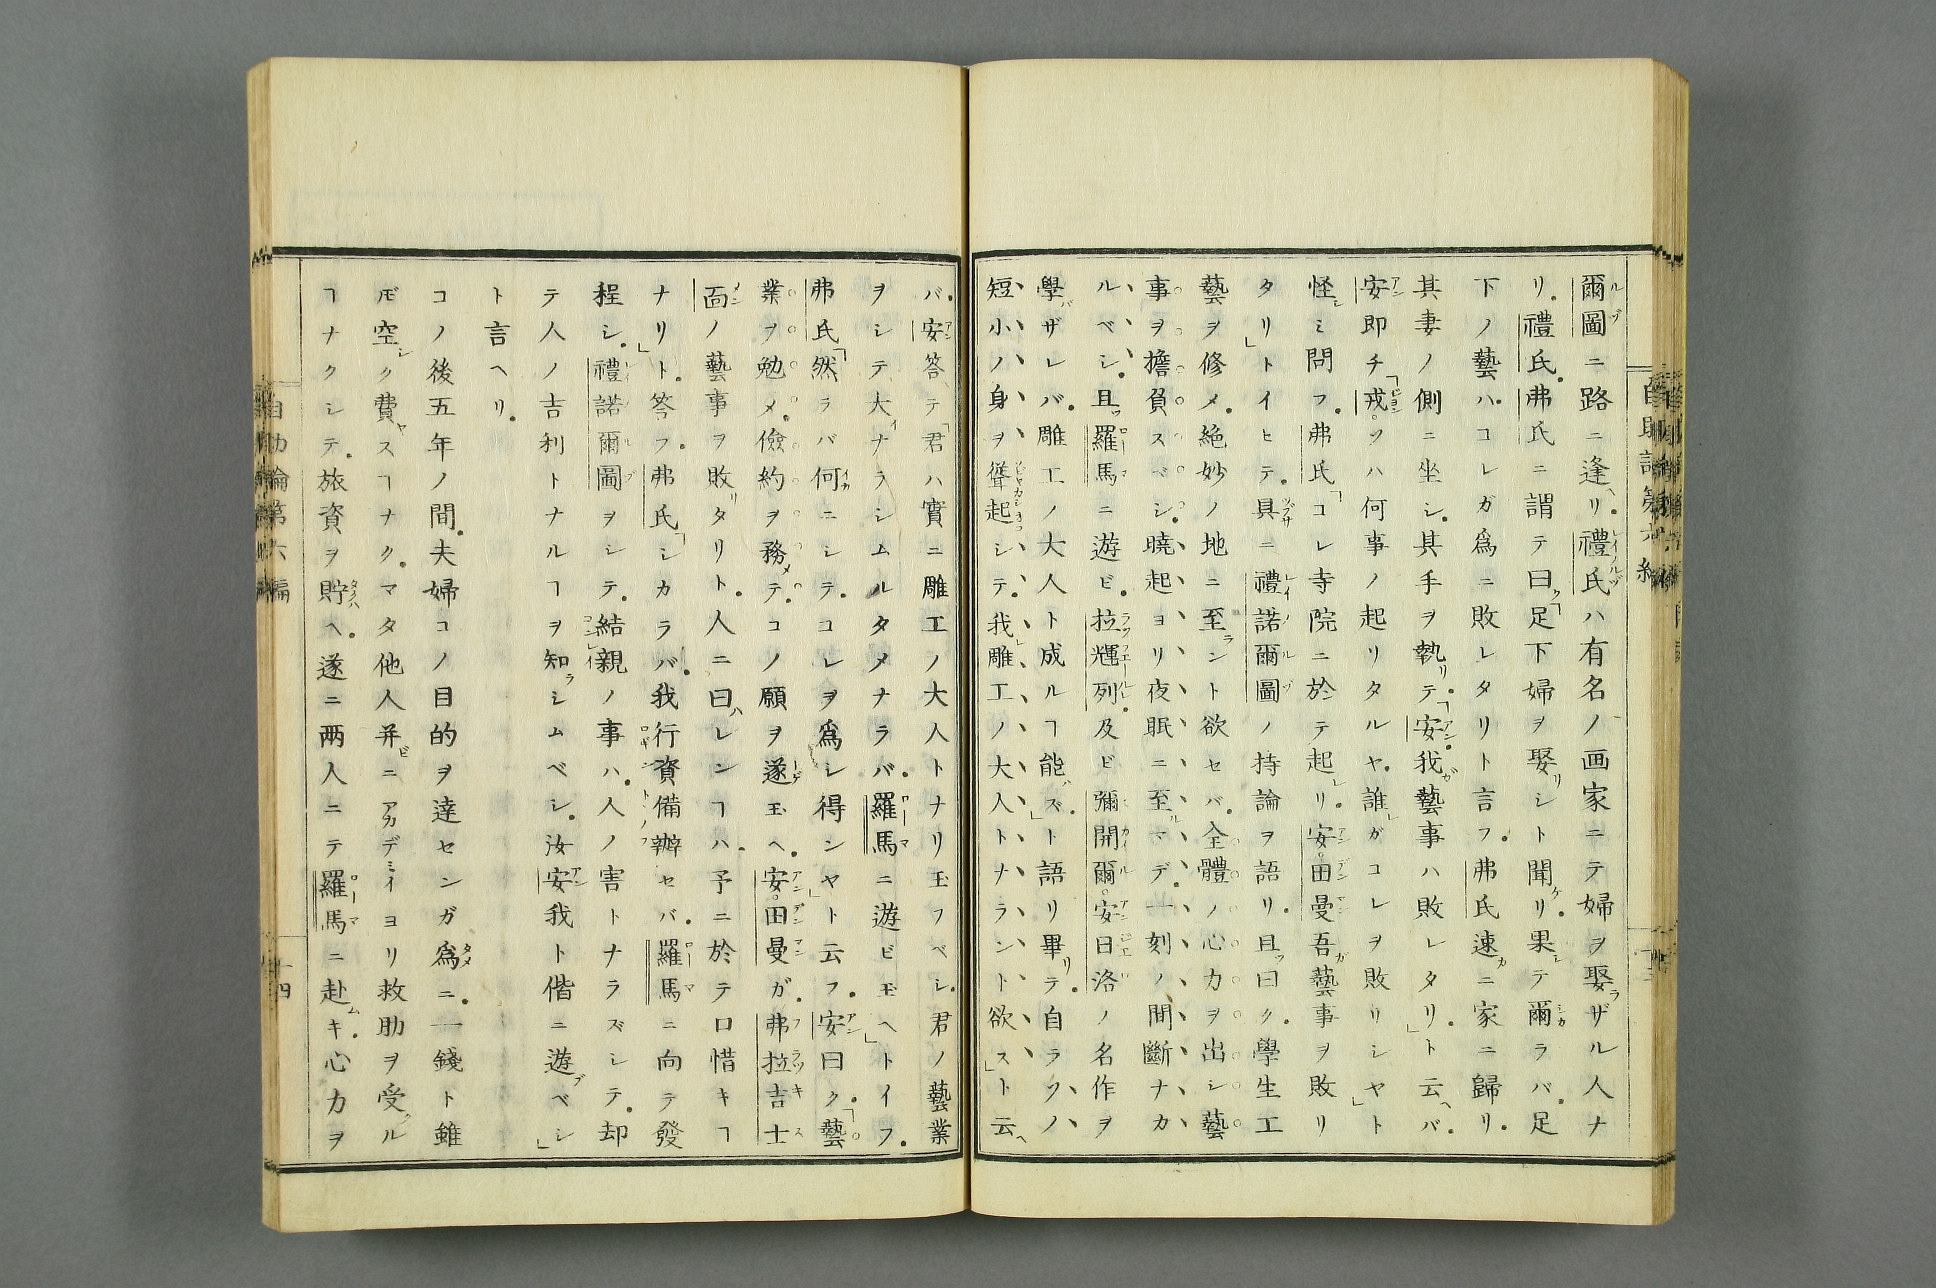 爾圖ニ路ニ逢ヘリ。禮氏ハ有名ノ画家ニテ婦ヲ娶ラザル人ナ
リ。禮氏。弗氏ニ謂テ曰ク「足下婦ヲ娶リシト聞ケリ。果シテ爾ラバ。足
下ノ藝ハ。コレガ爲ニ敗レタリト言フ。弗氏速カニ家ニ歸リ。
其妻ノ側ニ坐シ。其手ヲ執リテ。「安。我ガ藝事ハ敗レタリ。」ト云ヘバ。
安即チ「戎。ソハ何事ノ起リタルヤ。誰ガコレヲ敗リシヤ」ト
怪シミ問フ。弗氏「コレ寺院ニ於テ起レリ。安田曼吾ガ藝事ヲ敗リ
タリ」トイヒテ。具ニ禮諾爾圖ノ持論ヲ語リ。且ツ曰ク。學生工
藝ヲ修メ。絶妙ノ地ニ至ラント欲セバ。全體ノ心力ヲ出シ藝
事ヲ擔負スベシ。曉起ヨリ夜眠ニ至ルマデ。一刻ノ間斷ナカ
ルベシ。且ツ羅馬ニ遊ビ。拉輝列。及ビ彌開爾。安日洛ノ名作ヲ
學バザレバ。雕工ノ大人ト成ルヿ能ハズ。」ト語リ畢リテ。自ラソノ
短小ノ身ヲ聳起シテ。「我レ雕工ノ大人トナラント欲ス」ト云ヘ
バ。安答テ「君ハ實ニ雕工ノ大人トナリ玉フベシ。君ノ藝業
ヲシテ大イナラシムルタメナラバ。羅馬ニ遊ビ玉ヘ」トイフ。
弗氏「然ラバ何ニシテ。コレヲ爲シ得ンヤト云フ。安曰ク。「藝
業ヲ勉メ。儉約ヲ務メテ。コノ願ヲ遂ゲ玉ヘ。安田曼ガ。弗拉吉士
面ノ藝事ヲ敗リタリト。人ニ曰ハレンヿハ。予ニ於テ口惜キヿ
ナリ」ト。答フ。弗氏「シカラバ。我行資備辦セバ。羅馬ニ向テ發
程シ。禮諾爾圖ヲシテ。結親ノ事ハ。人ノ害トナラズシテ。却
テ人ノ吉利トナルヿヲ知ラシムベシ。汝安我ト偕ニ遊ブベシ」
ト言ヘリ。
コノ後五年ノ間。夫婦コノ目的ヲ達センガ爲ニ。一錢ト雖
ドモ空シク費ヤスヿナク。マタ他人并ビニアカデミイヨリ救助ヲ受クル
ヿナクシテ。旅資ヲ貯ハヘ。遂ニ両人ニテ羅馬ニ赴ムキ。心力ヲ
自助論第六編
十四